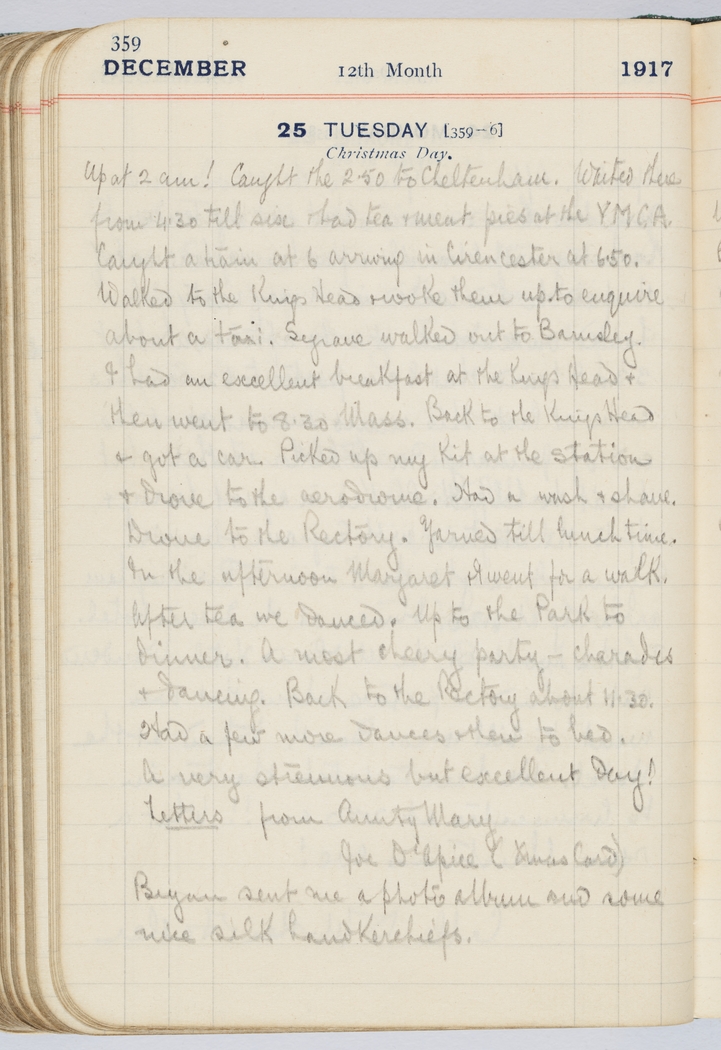 359
DECEMBER 12th Month 1917
25 TUESDAY [359-6]
Christmas Day.
Up at 2 am! Caught the 2.50 to Cheltenham. Waited there
from 4.30 till six & had tea & meat pies at the YMCA.
Caught a train at 6 arriving in Cirencester at 6.50.
Walked to the Kings Head & woke them up to enquire
about a taxi. Segrave walked out to Barnsley.
I had an excellent breakfast at the Kings Head &
then went to 8.30 Mass. Back to the Kings Head
& got a car. Picked up my Kit at the station
& drove to the aerodrome. Had a wash & shave.
Drove to the Rectory. Yarned till lunch time.
In the afternoon Margaret & I went for a walk.
After tea we danced. Up to the Park to
dinner. A most cheery party - charades
& dancing. Back to the Rectory about 11.30.
Had a few more dances & then to bed.
A very strenuous but excellent Day!
Letters from Aunty Mary
Joe D'Apice (Xmas Card)
Bryan sent me a photo album and some
nice silk handkerchiefs.